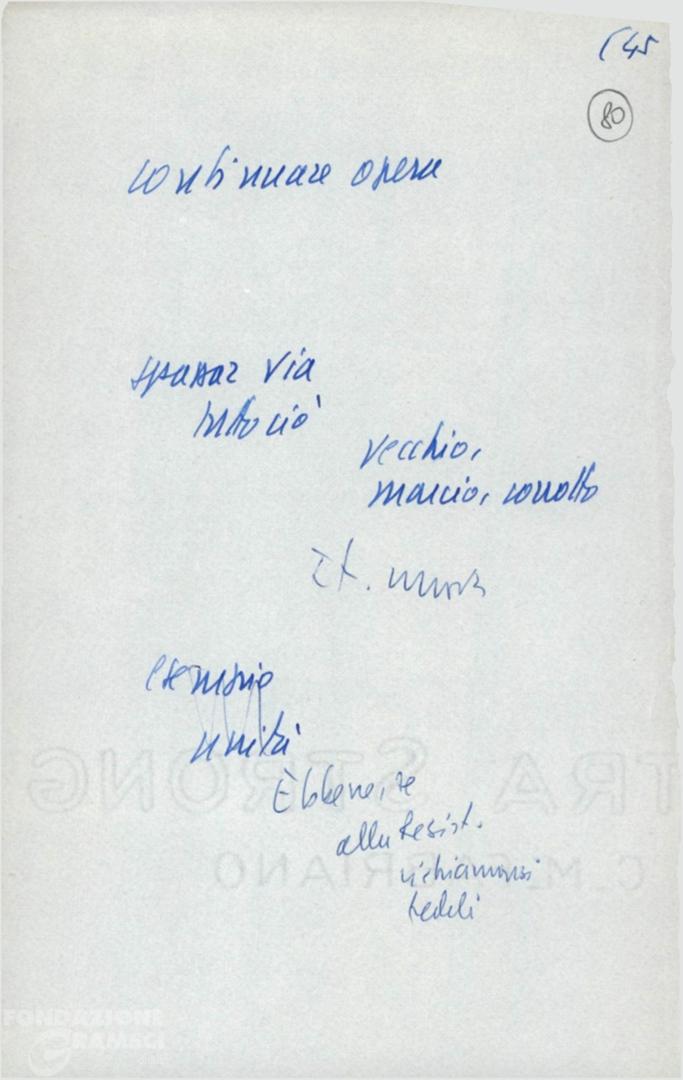 45
80
continuare opera
spazzar via
tutto ciò
vecchio,
marcio, corrotto
It. nuova
esempio
unità
Ebbene, se
alla Resist.
richiamarsi
fedeli
EXTRA STRONG
C.M. FABRIANO
FONDAZIONE
GRAMSCI